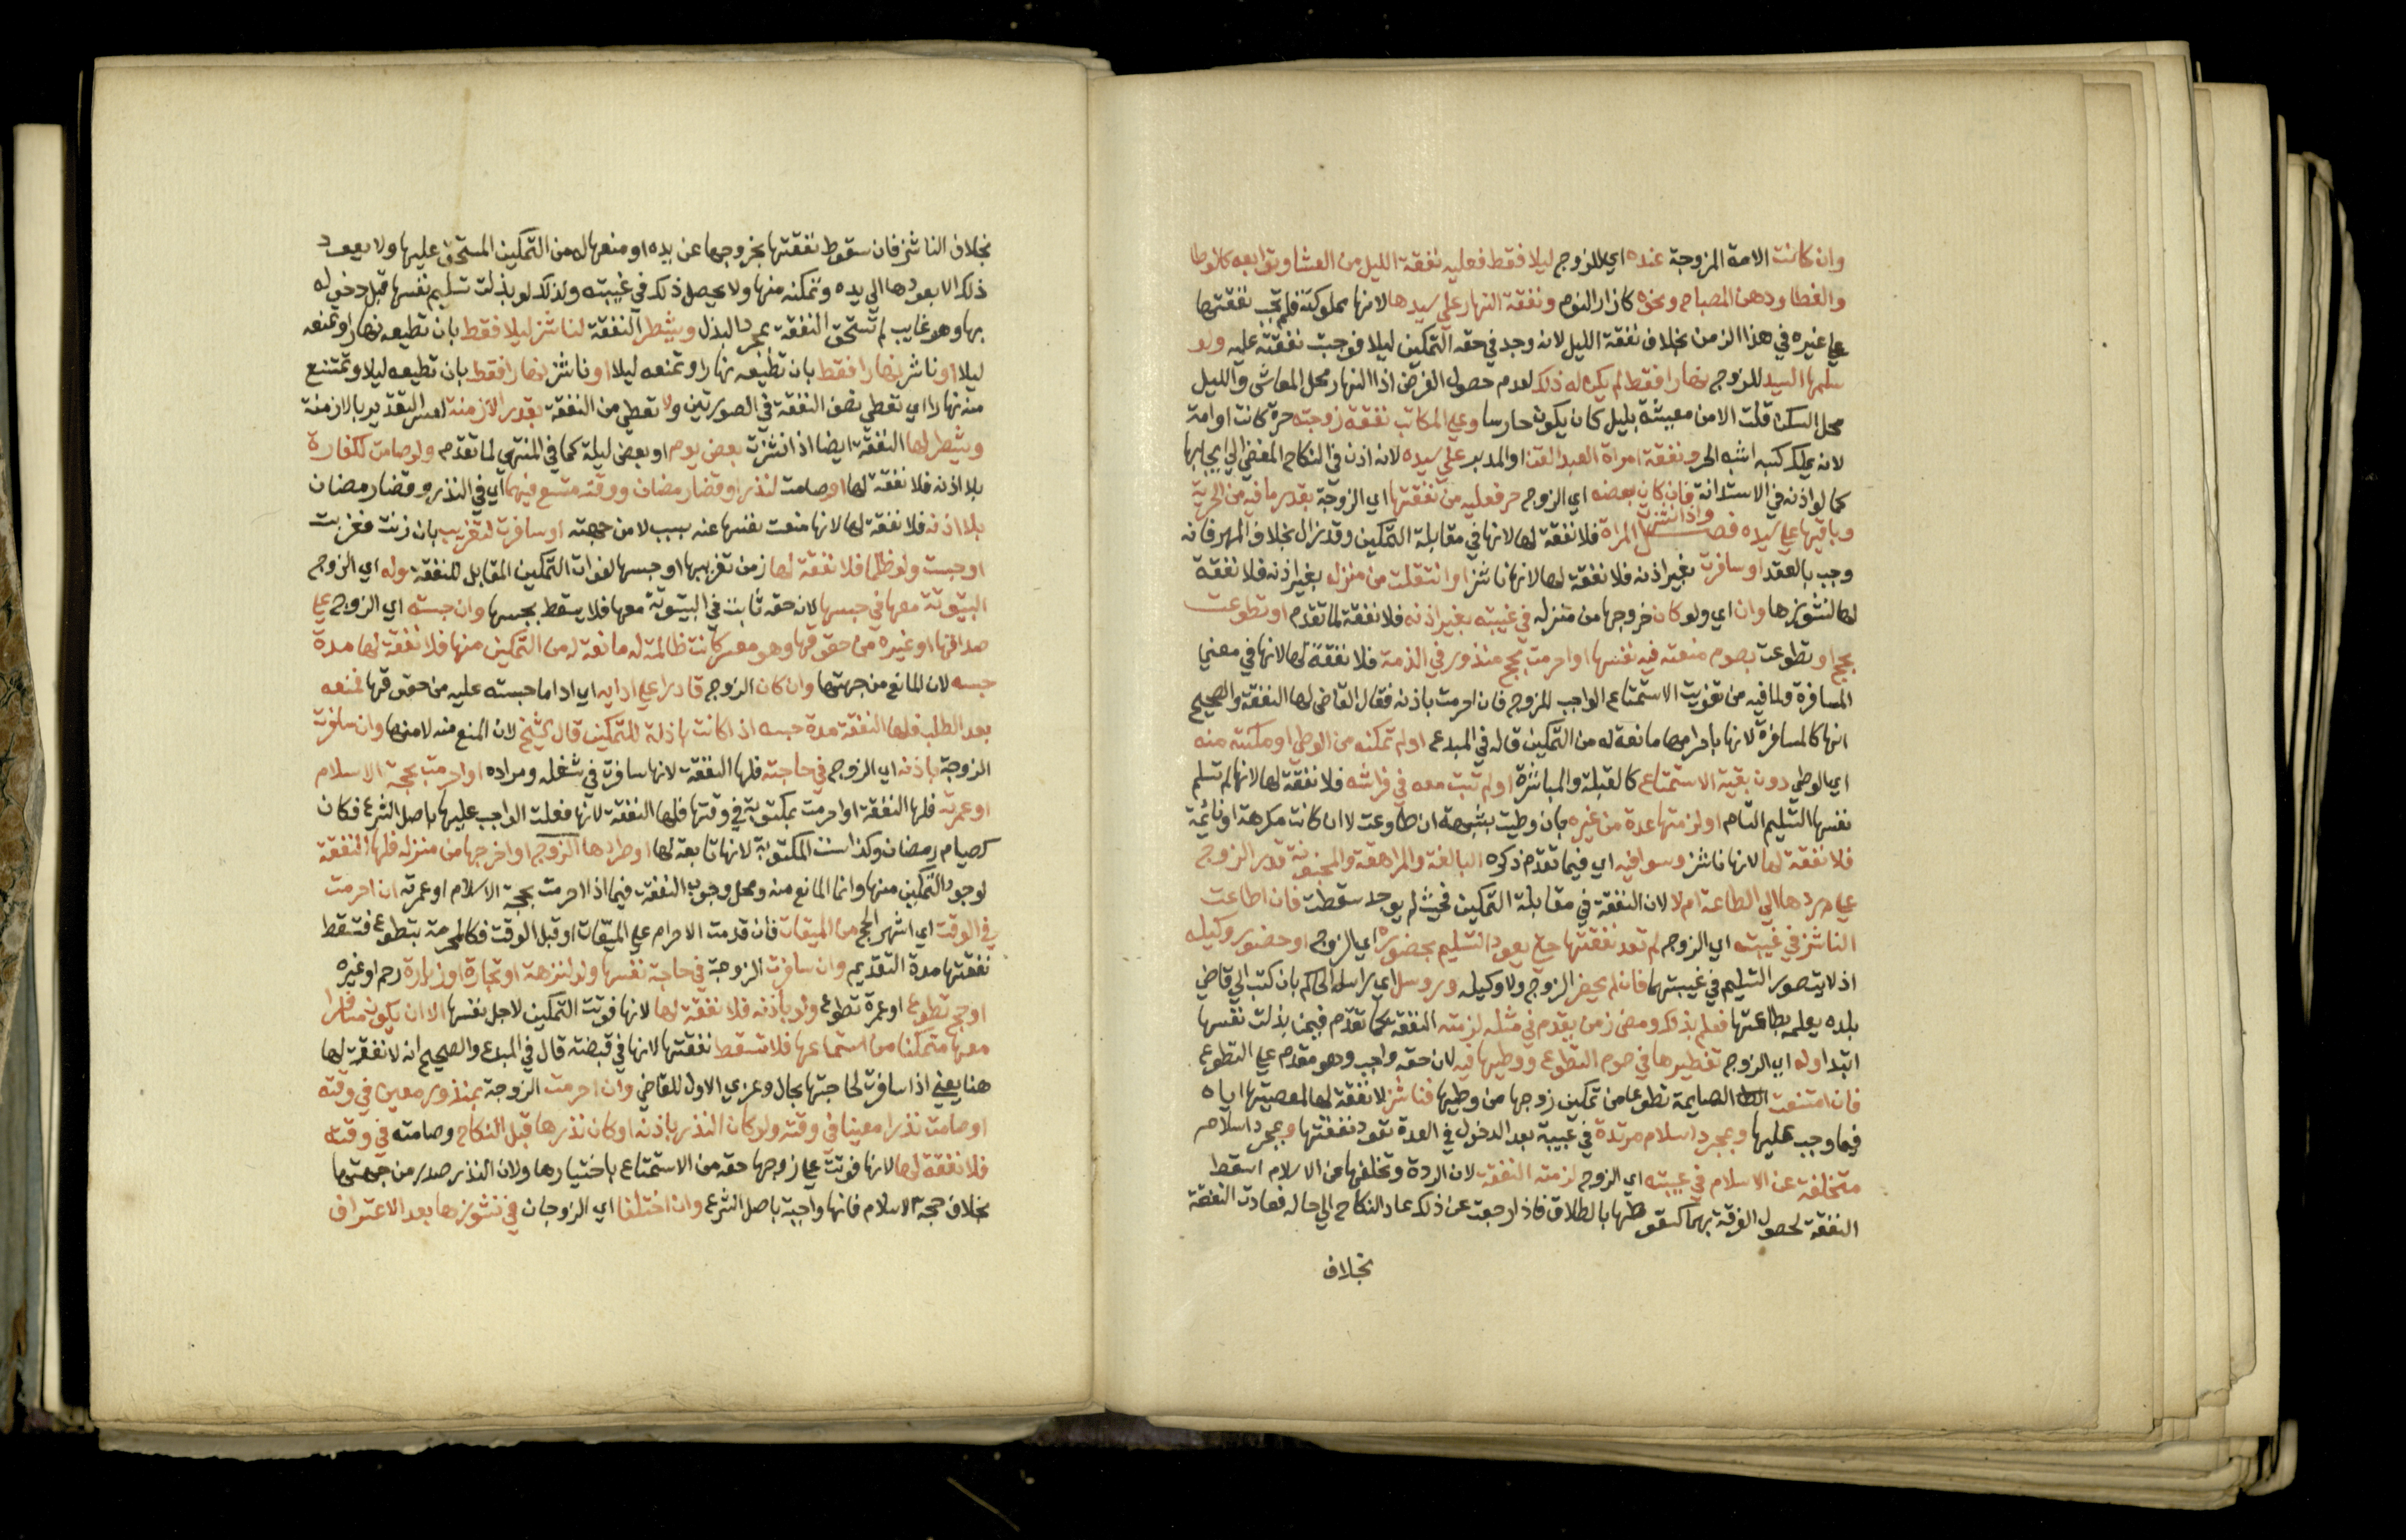 وان كانت الامة المزوجة عنده اي الزوج ليلا فقط فعليه نفقة الليل من العشا وتوابعه كالوطا
والغطا ودهن المصباح ونحوه كازار النوم ونفقة النهار على سيدها لانها مملوكته فلم تجب نفقتها
على غيره في هذا الزمن بخلاف نفقة الليل لانه وجد في حقه التمكين ليلا فوجبت نفقته عليه ولو
سلمها السيد للزوج نهارا فقط لم يكن له ذلك لعدم حصول الغرض اذا النهار محل المعاش والليل
محل السكن قلت الا من معيشته بليل كان يكون حارسا وعلى المكاتب نفقة زوجته حرة كانت او امة
لانه يملك كسبه اشبه الحر ونفقة امراة العبد القن او المدبر على سيده لانه اذن في النكاح المفضي الى ايجابها
كما لو اذنه في الاستدانة فان كان بعضه اي الزوج حر فعليه من نفقتها اي الزوجة بقدر ما فيه من الحرية
وباقيها على سيده فصل واذا نشزت المراة فلا نفقة لها لانها في مقابلة التمكين وقد زال بخلاف المهر فانه
وجب بالعقد او سافرت بغير اذنه فلا نفقة لها لانها ناشز او انتقلت من منزله بغير اذنه فلا نفقة
لها لنشوزها وان اي ولو كان خروجها من منزله في غيبته بغير اذنه فلا نفقة لما تقدم او تطوعت
بحج او تطوعت بصوم منعته فيه نفسها او احرمت بحج منذور في الذمة فلا نفقة لها لانها في معنى
المسافرة ولما فيه من تفويت الاستمتاع الواجب للزوج فان احرمت باذنه فقال القاضي لها النفقة والصحيح
انها كالمسافرة لانها باحرامها مانعة له من التمكين قاله في المبدع او لم تمكنه من الوطي او مكنته منه
اي الوطي دون بقية الاستمتاع كالقبلة والمباشرة او لم تبت معه في فراشه فلا نفقة لها لانها لم تسلم
نفسها التسليم التام او لزمتها عدة من غيره بان وطيت بشبهة ان طاوعت لا ان كانت مكرهة او نائمة
فلا نفقة لها لانها ناشز وسوا فيه اي فيما تقدم ذكره البالغة والمراهقة والمجنونة قدر الزوج
على ردها الى الطاعة ام لا لان النفقة في مقابلة التمكين فحيث لم يوجد سقطت فان اطاعت
الناشز في غيبته اي الزوج لم تعد نفقتها حتى يعود التسليم بحضوره اي الزوج او حضور وكيله
اذ لا يتصور التسليم في غيبتهما فان لم يحضر الزوج ولا وكيله وروسل اي راسله الحاكم بان كتب الى قاضي
بلده يعلمه بطاعتها فعلم بذلك ومضى زمن يقدم في مثله لزمته النفقة كما تقدم فيمن بذلت نفسها
ابتدا وله اي الزوج تفطيرها في صوم التطوع ووطيها فيه لان حقه واجب وهو مقدم على التطوع
فان امتنعت الصايمة تطوعا من تمكين زوجها من وطيها فناشز لا نفقة لها لمعصيتها اياه
فيما وجب عليها وبمجرد اسلام مرتدة في غيبة بعد الدخول في العدة تعود نفقتها وبمجرد اسلام
متخلفة عن الاسلام في غيبته اي الزوج لزمته النفقة لان الردة وتخلفها عن الاسلام اسقط
النفقة لحصول الفرقة بهما كسقوطها بالطلاق فاذا رجعت عن ذلك عاد النكاح الى حاله فعادت النفقة
بخلاف
بخلاف الناشز فان سقوط نفقتها بخروجها عن يده او منعها له من التمكين المستحق عليها ولا يعود
ذلك الا بعودها الى يده وتمكنه منها ولا يحصل ذلك في غيبته ولذلك لو بذلت تسليم نفسها قبل دخوله
بها وهو غايب لم تستحق النفقة بمجرد البذل ويشطر النفقة لناشز ليلا فقط بان تطيعه نهارا وتمنعه
ليلا او ناشز نهارا فقط بان تطيعه نهارا وتمنعه ليلا او ناشز نهارا فقط بان تطيعه ليلا وتمتنع
منه نهارا اي تعطى نصف النفقة في الصورتين ولا تعطى من النفقة بقدر الازمنة لعسر التقدير بالازمنة
ويشطر لها النفقة ايضا اذا نشزت بعض يوم او بعض ليلة كما في المنتهى لما تقدم ولو صامت لكفارة
بلا اذنه فلا نفقة لها او صامت لنذر او قضا رمضان ووقته متسع فيهما اي في النذر وقضا رمضان
بلا اذنه فلا نفقة لها لانها منعت نفسها عنه بسبب لا من جهته او سافرت لتغريب بان زنت فغربت
او حبست ولو ظلما فلا نفقة لها زمن تغريبها او حبسها لفوات التمكين المقابل للنفقة وله اي الزوج
البيتوتة معها في حبسها لان حقه ثابت في البيتوتة معها فلا يسقط بحبسها وان حبسته اي الزوج على
صداقها او غيره من حقوقها وهو معسر كانت ظالمة له مانعة له من التمكين منها فلا نفقة لها مدة
حبسه لان المانع من جهتها وان كان الزوج قادرا على ادايه اي ادا ما حبسته عليه من حقوقها فمنعه
بعد الطلب فلها النفقة مدة حبسه اذا كانت باذلة للتمكين قال الشيخ لان المنع منه لا منها وان سافرت
الزوجة باذنه اي الزوج في حاجته فلها النفقة لانها سافرت في شغله ومراده او احرمت بحجة الاسلام
او عمرته فلها النفقة او احرمت بمكتوبة في وقتها فلها النفقة لانها فعلت الواجب عليها باصل الشرع فكان
كصيام رمضان وكذا سنن المكتوبة لانها تابعة لها او طردها الزوج او اخرجها من منزله فلها النفقة
لوجود التمكين منها وانما المانع منه ومحل وجوب النفقة فيما اذا احرمت بحجة الاسلام او عمرته ان احرمت
في الوقت اي اشهر الحج من الميقات فان قدمت الاحرام على الميقات او قبل الوقت فكالمحرمة بتطوع فتسقط
نفقتها مدة التقديم وان سافرت الزوجة في حاجة نفسها ولو لنزهة او تجارة او زيارة رحم او غيره
او حج تطوع او عمرة تطوع ولو باذنه فلا نفقة لها لانها فوتت التمكين لاجل نفسها الا ان يكون مسافرا
معها متمكنا من استمتاعها فلا تسقط نفقتها لانها في قبضته قال في المبدع والصحيح انه لا نفقة لها
هنا يعني اذا سافرت لحاجتها بحال وعزي الاول للقاضي وان احرمت الزوجة بمنذور معين في وقته
او صامت نذرا معينا في وقته ولو كان النذر باذنه او كان نذرها قبل النكاح وصامته في وقته
فلا نفقة لها لانها فوتت على زوجها حقه من الاستمتاع باختيارها ولان النذر صدر من جهتها
بخلاف حجة الاسلام فانها واجبة باصل الشرع وان اختلفا اي الزوجان في نشوزها بعد الاعتراف